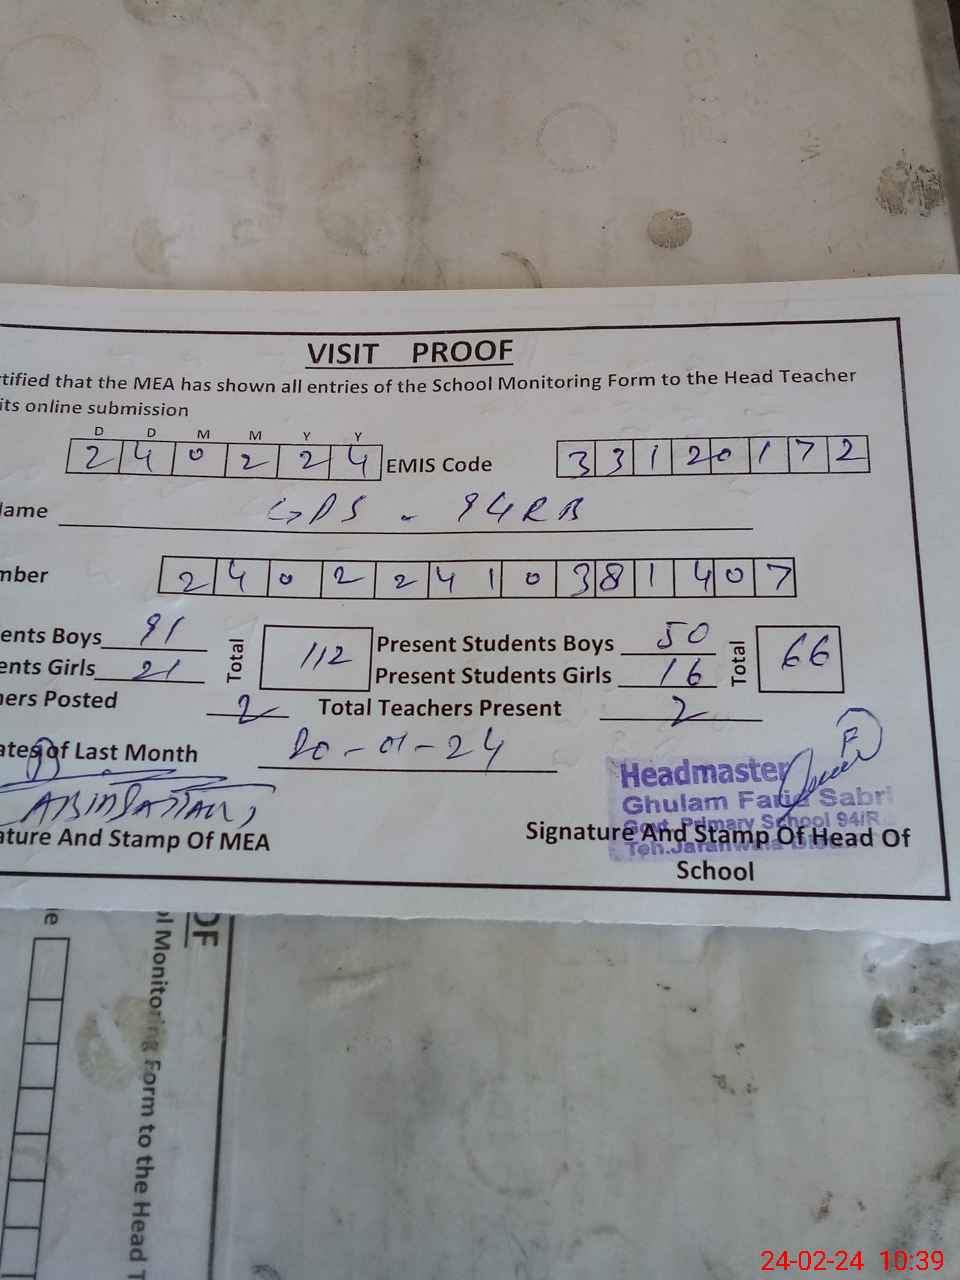 VISIT PROOF
rtified that the MEA has shown all entries of the School Monitoring Form to the Head Teacher
its online submission
D D M M Y Y
2 4 0 2 2 4 EMIS Code 3 3 1 2 0 1 7 2
ame GPS - 94RB
mber 2 4 0 2 2 4 1 0 3 8 1 4 0 7
ents Boys 91 Total 112 Present Students Boys 50 Total 66
ents Girls 21 Present Students Girls 16
hers Posted 2 Total Teachers Present 2
ates of Last Month 20-01-24
Headmaster
Ghulam Farid Sabri
Govt. Primary School 94/R
Teh. Jaranwala
ature And Stamp Of MEA
Signature And Stamp Of Head Of
School
OF
ol Monitoring Form to the Head T
e
24-02-24 10:39